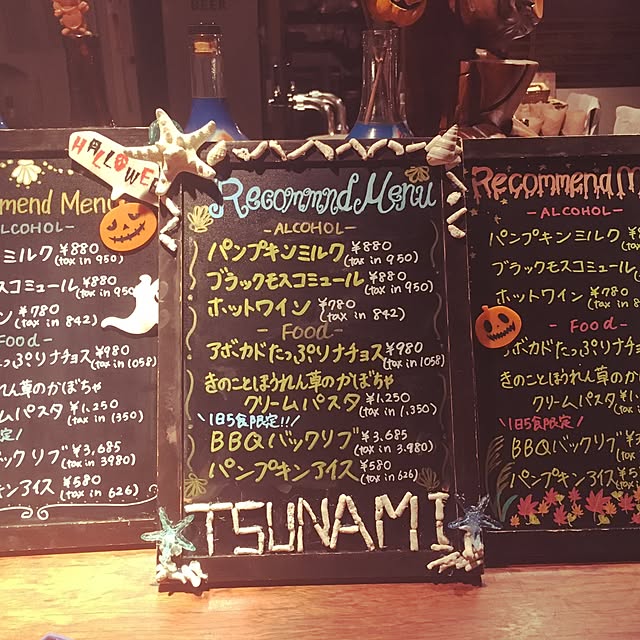 HALLOWEE
mmend Menu
ALCOHOL-
ミルク ¥880
(tax in 950)
スコミュール ¥880
(tax in 950)
ン ¥780
(tax in 842)
Food-
っぷりナチョス ¥980
(tax in 1058)
れん草のかぼちゃ
ームパスタ ¥1,250
(tax in 1350)
定/
ック リブ ¥3,685
(tax in 3980)
キンアイス ¥580
(tax in 626)
Recommnd Menu
-ALCOHOL-
パンプキンミルク ¥880
(tax in 950)
ブラックモスコミュール ¥880
(tax in 950)
ホットワイン ¥780
(tax in 842)
-Food-
アボカドたっぷりナチョス ¥980
(tax in 1058)
きのことほうれん草のかぼちゃ
クリームパスタ ¥1,250
(tax in 1,350)
\1日5食限定!!/
BBQバックリブ ¥3,685
(tax in 3.980)
パンプキンアイス ¥580
(tax in 626)
TSUNAMI
Recommend M
-ALCOHOL-
パンプキンミルク ¥8
ブラックモスコミュール
ホットワイン ¥780
(tax in 8
-Food-
アボカドたっぷりナチョス
きのことほうれん草のか
クリームパスタ ¥1
\1日5食限定!!/
BBQバックリブ ¥3
パンプキンアイス ¥5